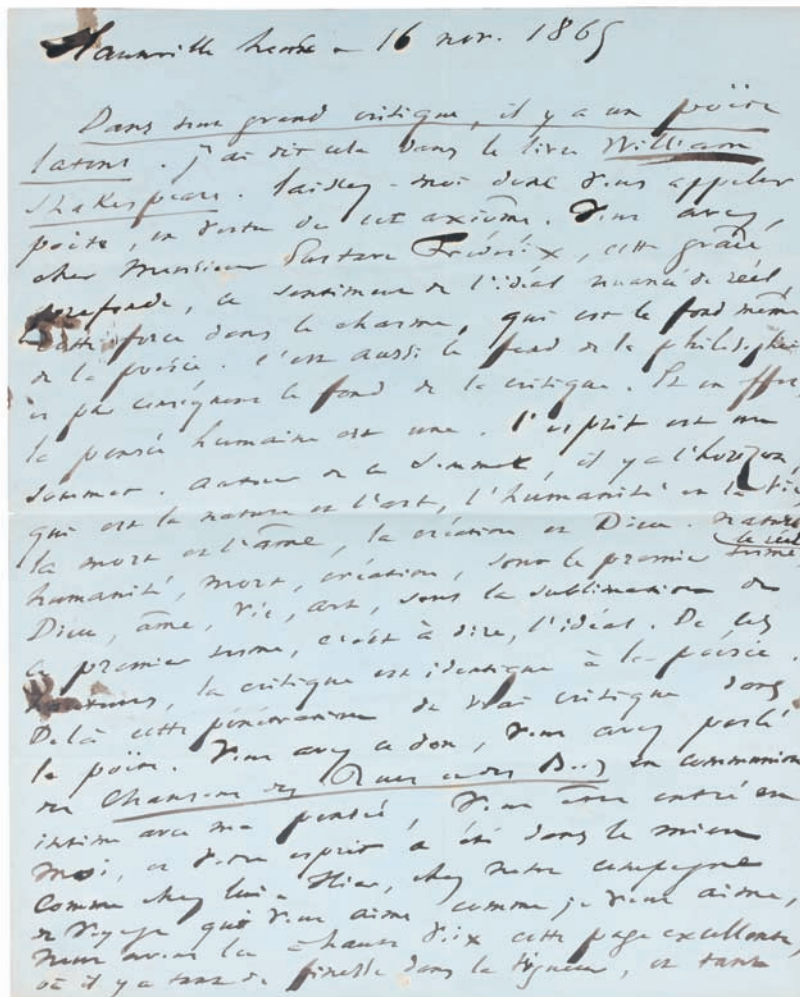 Hauteville house – 16 nov. 1865
Dans tout grand critique, il y a un poëte
latent. J'ai dit cela dans le livre William
Shakespeare. Laissez-moi donc vous appeler
poëte, en vertu de cet axiôme. Vous avez,
cher Monsieur Gustave Frédérix, cette grâce
profonde, ce sentiment de l'idéal nuancé de réel,
cette force dans le charme, qui est le fond même
de la poésie. C'est aussi le fond de la philosophie
et par conséquent le fond de la critique. Et en effet,
la pensée humaine est une. L'esprit est un
sommet. Autour de ce sommet, il y a l'horizon,
qui est la nature et l'art, l'humanité et la vie,
la mort et l'âme, la création et Dieu. Nature,
humanité, mort, création, sont le premier terme, le réel
Dieu, âme, vie, art, sont la sublimation de
ce premier terme, c'est à dire, l'idéal. De ces
hauteurs, la critique est identique à la poésie.
De là cette pénétration du vrai critique dans
le poëte. Vous avez ce don, vous avez parlé
des Chansons des Rues et des Bois en communion
intime avec ma pensée, vous êtes entré en
moi, et votre esprit a été dans le mien
comme chez lui. Hier, chez notre compagne
de voyage qui vous aime comme je vous aime,
nous avons lu à haute voix cette page excellente,
où il y a tant de finesse dans la vigueur, et tant